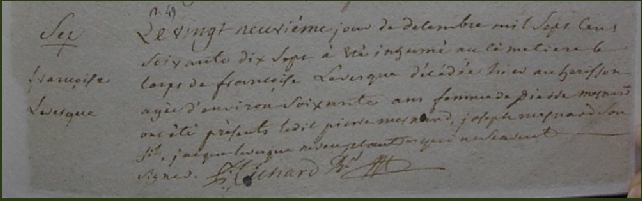 Sec
françoise
Levesque
Le vingt neuvième jour de decembre mil sept cens
soixante dix sept à été inhumé au cimetiere le
corps de françoise Levesque décédée hier au herisson
agée d'environ soixante ans femme de pierre mesnard
ont été présents ledit pierre mesnard, joseph mesnard son
fils, jacque levesque neveu
signer. Richard